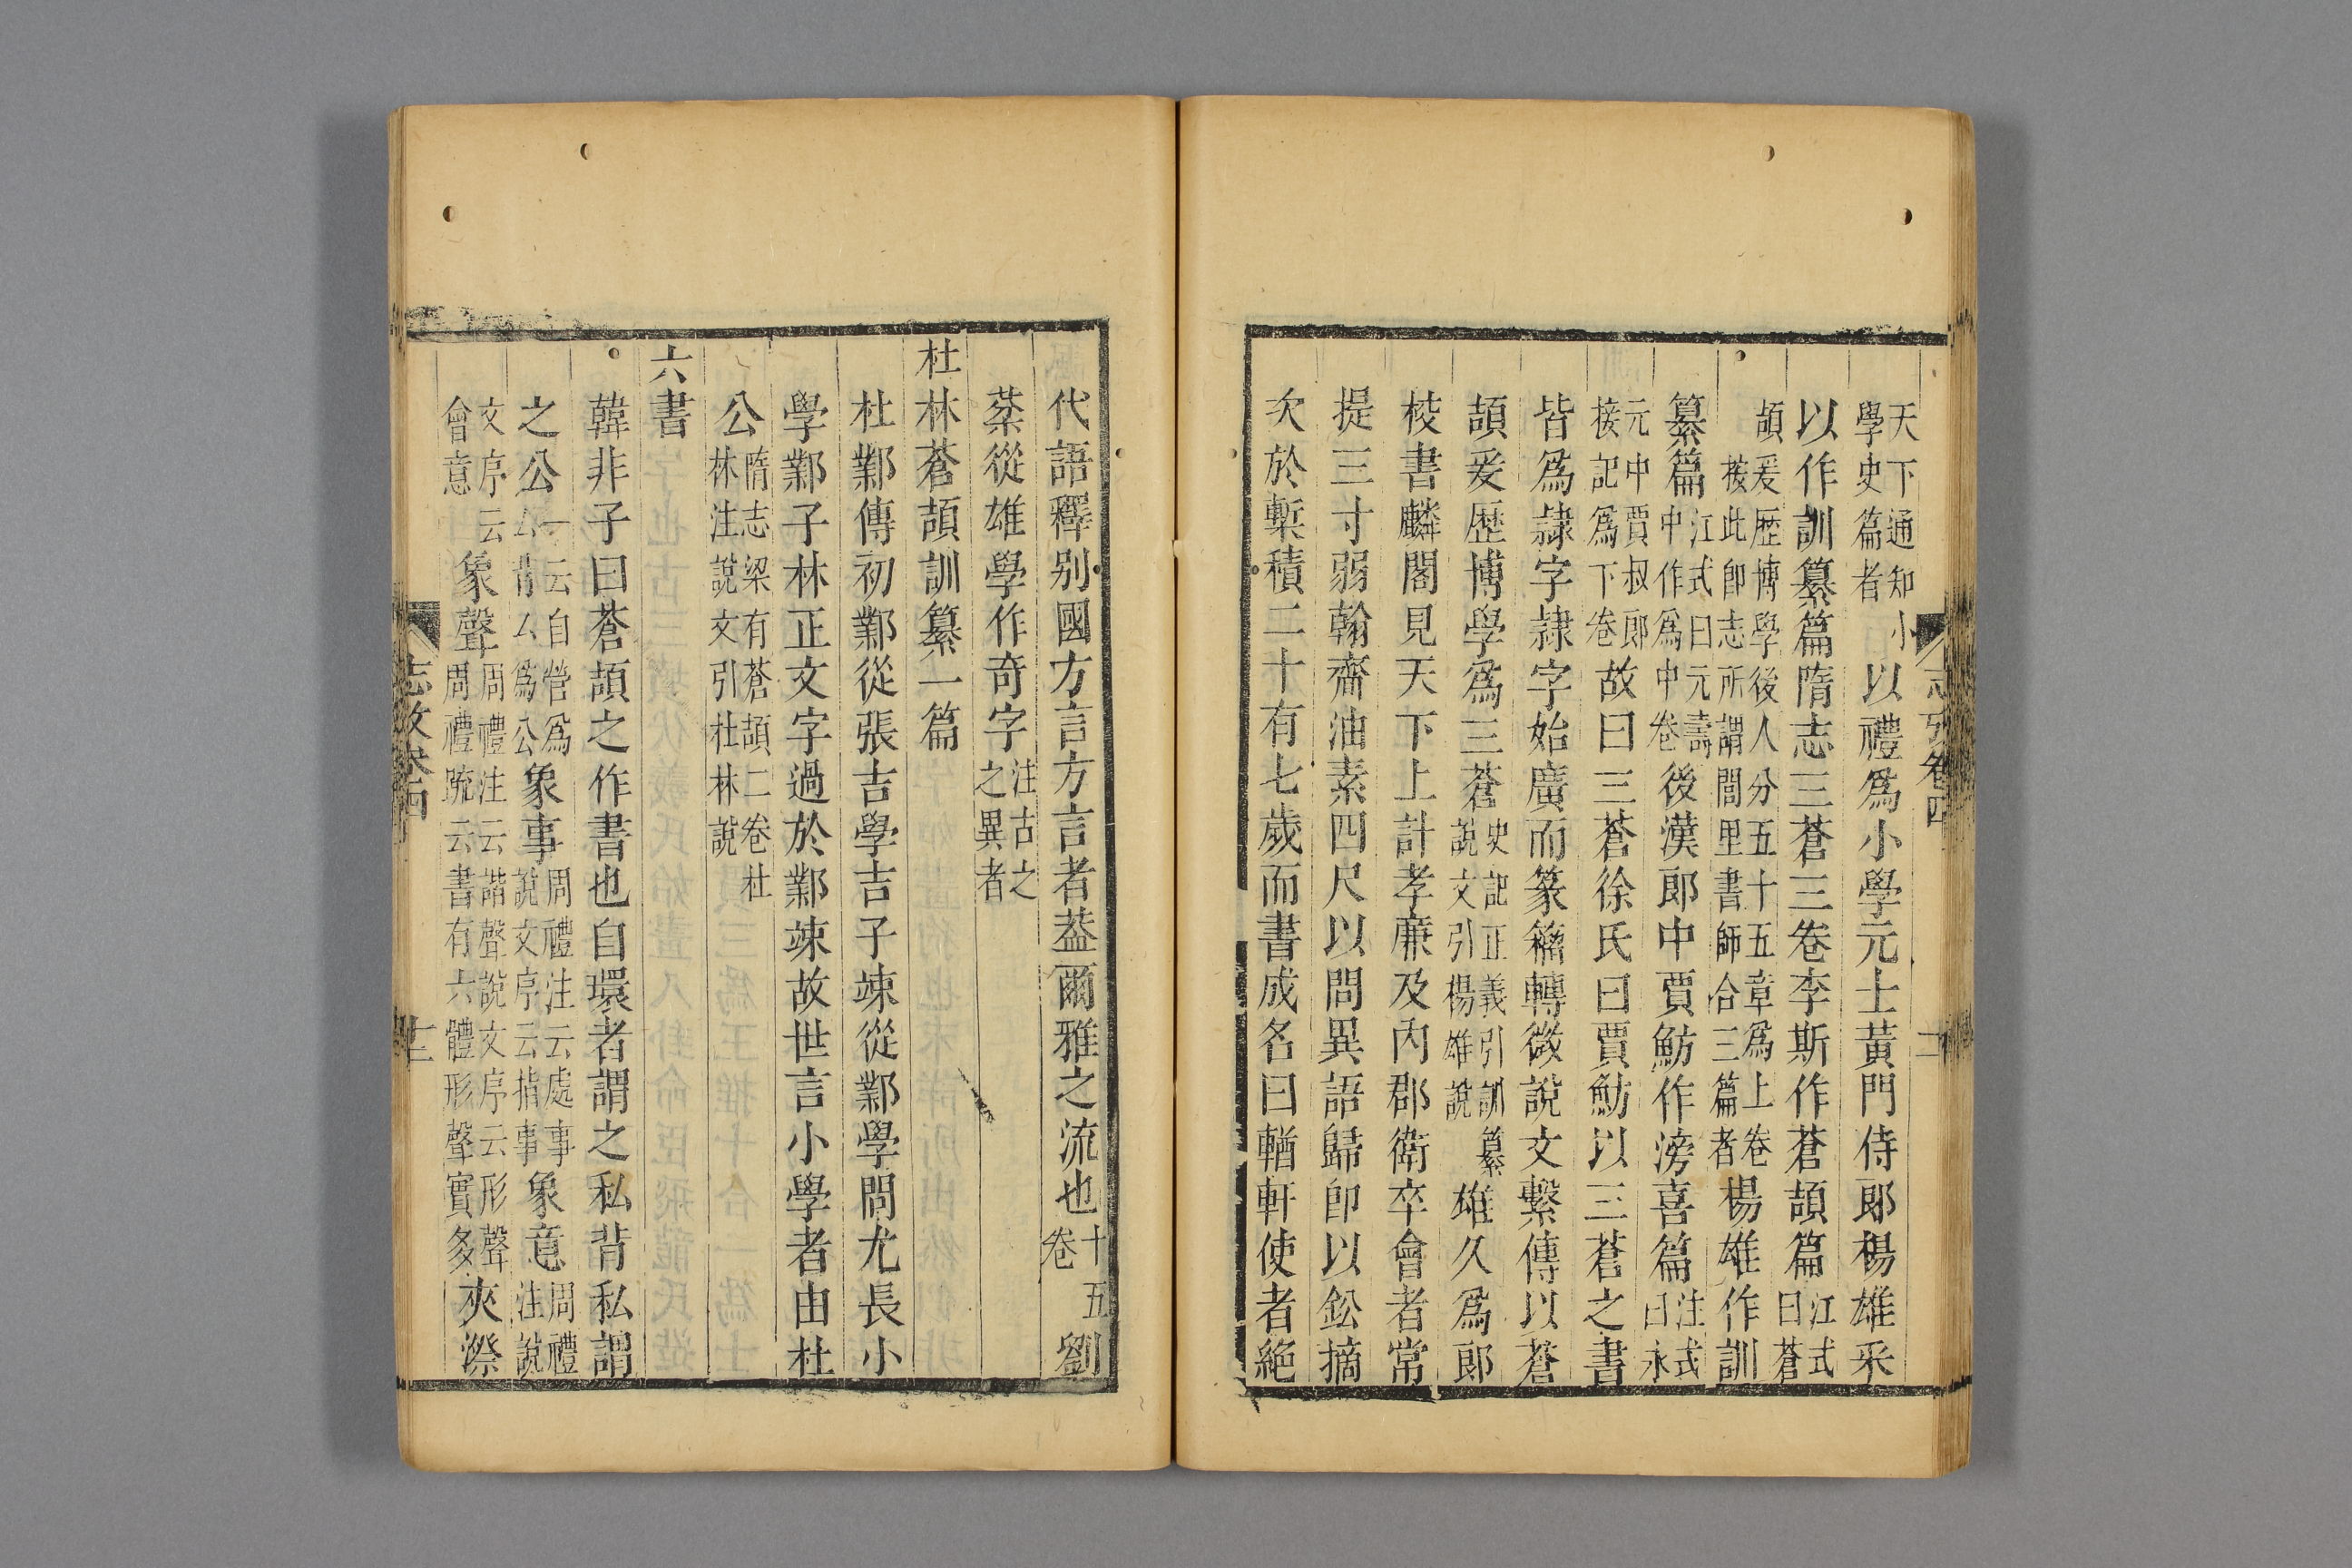 天下通知小
學史篇者
以禮爲小學元士黃門侍郎楊雄采
以作訓纂篇隋志三蒼三卷李斯作蒼頡篇
江式
曰蒼
頡爰歷博學後人分五十五章爲上卷
按此即志所謂閭里書師合三篇者
楊雄作訓
纂篇
江式曰元壽
中作爲中卷
後漢郎中賈魴作滂喜篇
江式
曰永
元中賈叔郎
接記爲下卷
故曰三蒼徐氏曰賈魴以三蒼之書
皆爲隸字隸字始廣而篆籀轉微說文繫傳以蒼
頡爰歷博學爲三蒼
史記正義引訓纂
說文引楊雄說
雄久爲郎
校書麟閣見天下上計孝廉及内郡衛卒會者常
提三寸弱翰齎油素四尺以問異語歸卽以鈆摘
次於槧積二十有七歲而書成名曰輶軒使者絕
代語釋别國方言方言者葢爾雅之流也
十五
卷
劉
棻從雄學作奇字
注古之
之異者
杜林蒼頡訓纂一篇
杜鄴傳初鄴從張吉學吉子竦從鄴學問尤長小
學鄴子林正文字過於鄴竦故世言小學者由杜
公
隋志梁有蒼頡二卷杜
林注說文引杜林說
六書
韓非子曰蒼頡之作書也自環者謂之私背私謂
之公
一云自營爲
厶背厶爲公
象事
周禮注云處事
說文序云指事
象意
周禮
注說
文序云
會意
象聲
周禮注云諧聲說文序云形聲
周禮疏云書有六體形聲實多
夾漈
志攷卷四